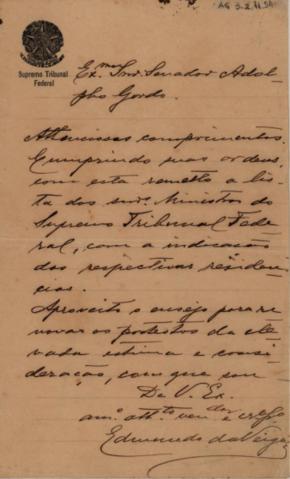 AG 3.2.11.54
Supremo Tribunal
Federal
Ex.mo Snr. Senador Adol-
pho Gordo.
Attenciosos comprimentos.
Cumprindo suas ordens,
com esta remetto a lis-
ta dos snrs. Ministros do
Supremo Tribunal Fede-
ral, com a indicação
das respectivas residen-
cias.
Aproveito o ensejo para re-
novar os protestos da ele-
vada estima e consi-
deração, com que sou
De V. Ex.
am.o att.to ven.dor e
Edmundo da Veiga